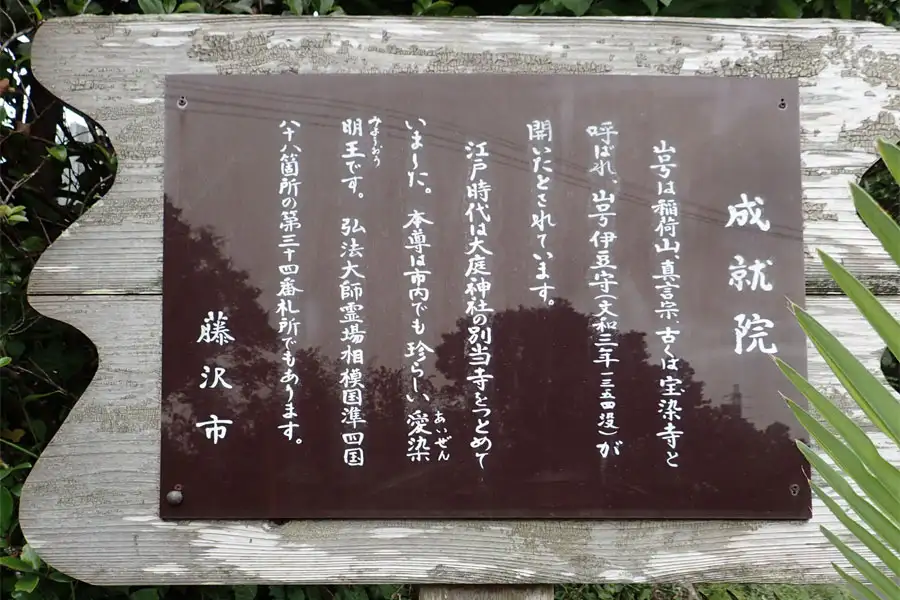 成就院
山号は稲荷山、真言宗、古くは宝染寺と
呼ばれ、山号伊豆守（文和三年一三五四没）が
開いたとされています。
江戸時代は大庭神社の別当寺をつとめて
いました。本尊は市内でも珍らしい愛染
あいぜん
明王です。弘法大師霊場相模国準四国
みょうおう
八十八箇所の第三十四番札所でもあります。
藤沢市